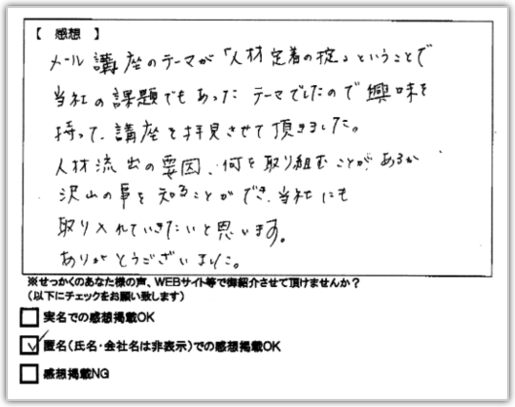 【 感想 】
メール講座のテーマが「人材定着の掟」ということで
当社の課題でもあったテーマでしたので興味を
持って、講座を拝見させて頂きました。
人材流出の要因、何を取り組むことがあるか
沢山の事を知ることができ、当社にも
取り入れていきたいと思います。
ありがとうございました。
※せっかくのあなた様の声、WEBサイト等で御紹介させて頂けませんか？
（以下にチェックをお願い致します）
実名での感想掲載OK
匿名（氏名・会社名は非表示）での感想掲載OK
感想掲載NG